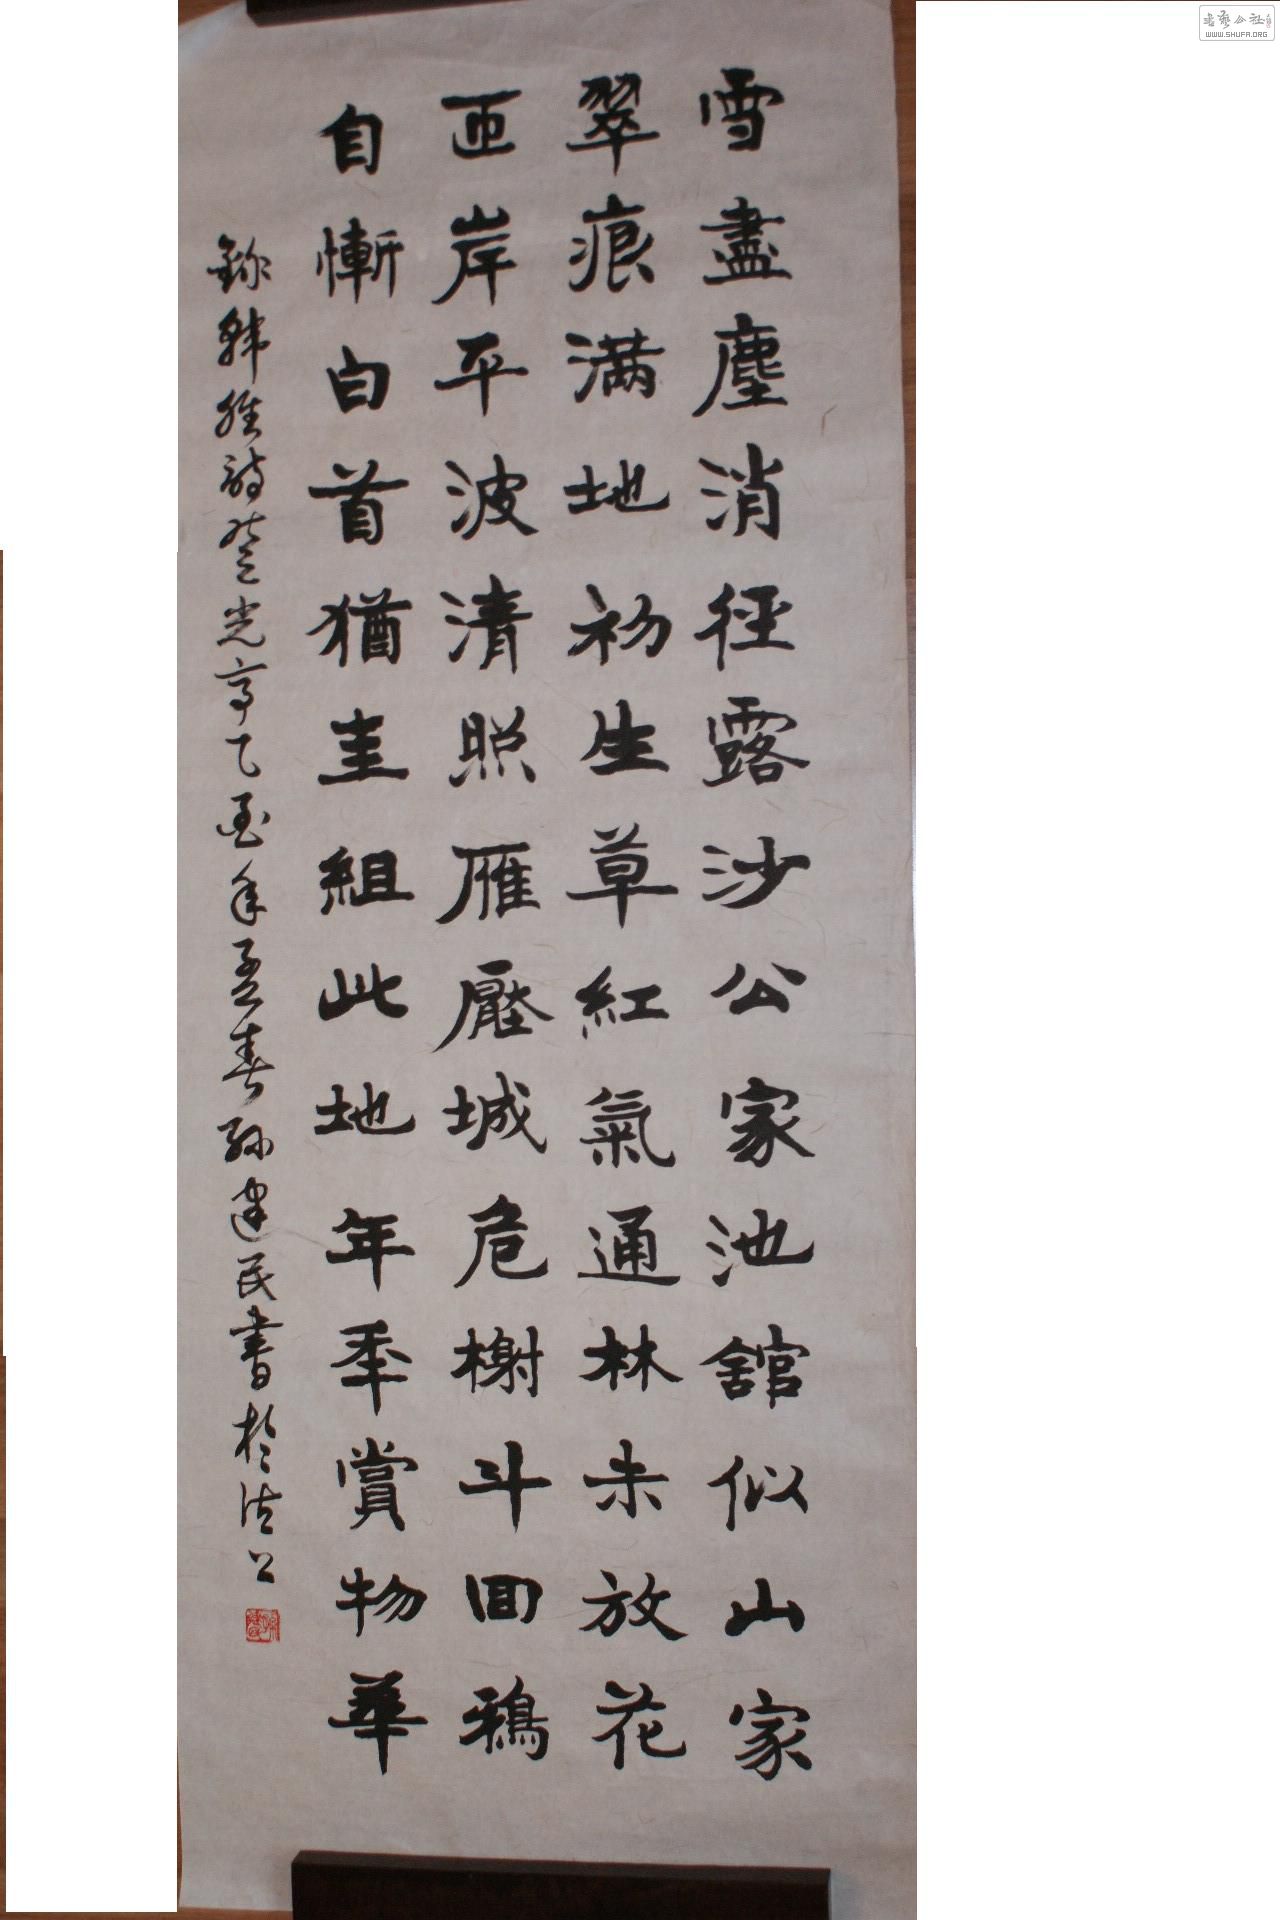 雪盡塵消徑露沙公家池舘似山家
翠痕满地初生草紅氣通林未放花
匝岸平波清照雁壓城危榭斗回鴉
自慚白首猶圭組此地年秊賞物華
錄韩维詩登光亭乙酉年孟春孙建民書於
書藝公社
WWW.SHUFA.ORG